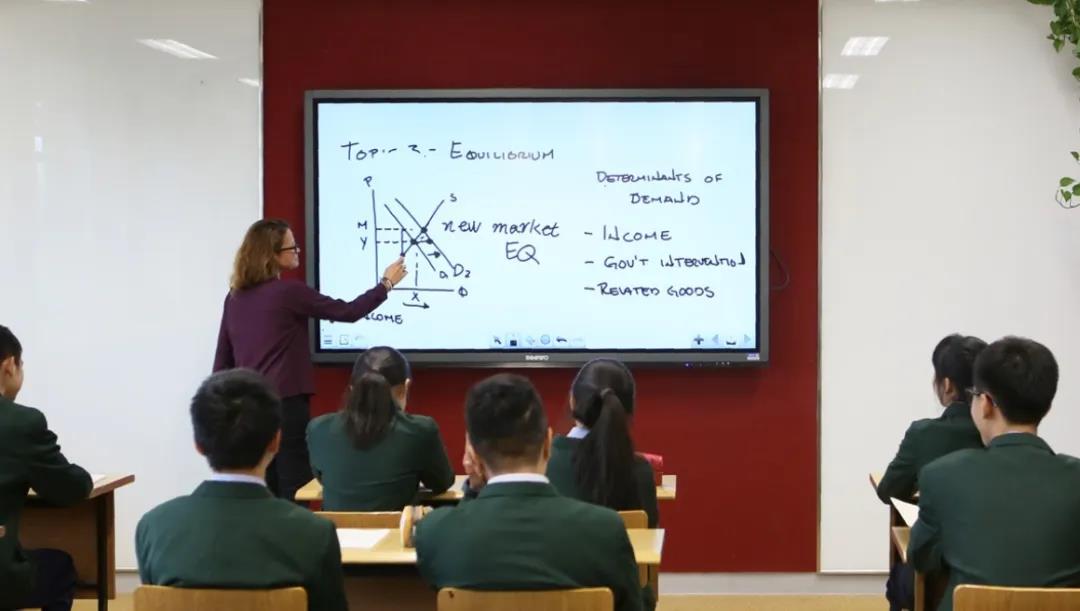 Topic 3.- EQUILIBRIUM
P
S
M
new market
EQ
Y
D1
D2
Q
X
DETERMINANTS OF
DEMAND
- INCOME
- GOV'T INTERVENTION
- RELATED GOODS